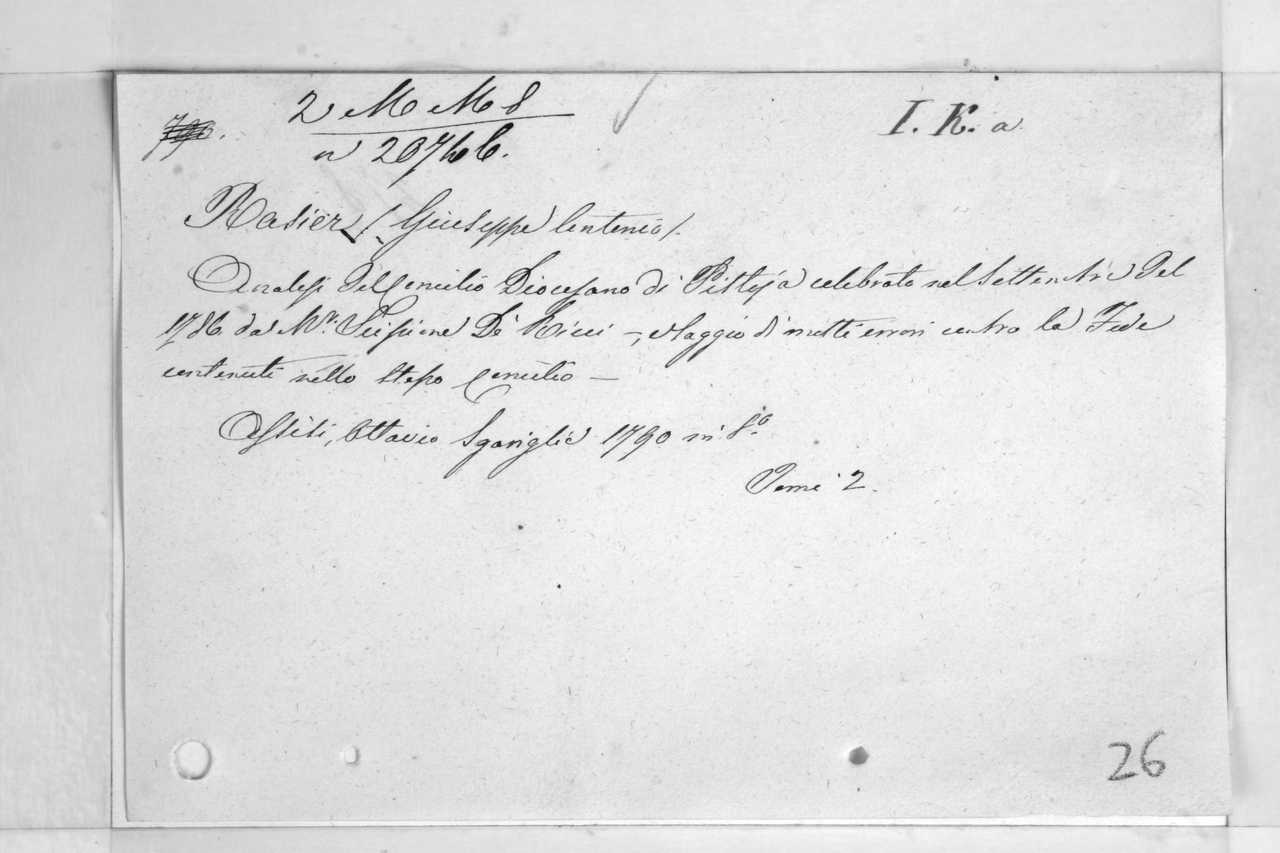 2 M M 8
I. K. a
n 20746 C.
Rasier (Giuseppe Centenio).
Analisi del Concilio Diocesano di Pistoja celebrato nel Settembre del
1786 da Mr. Scipione De' Ricci –, o saggio di molti errori contro la Fede
contenuti nello stesso Concilio –
Assisi, Ottavio Sgariglia 1790 in 8.o
Tomi 2.
26